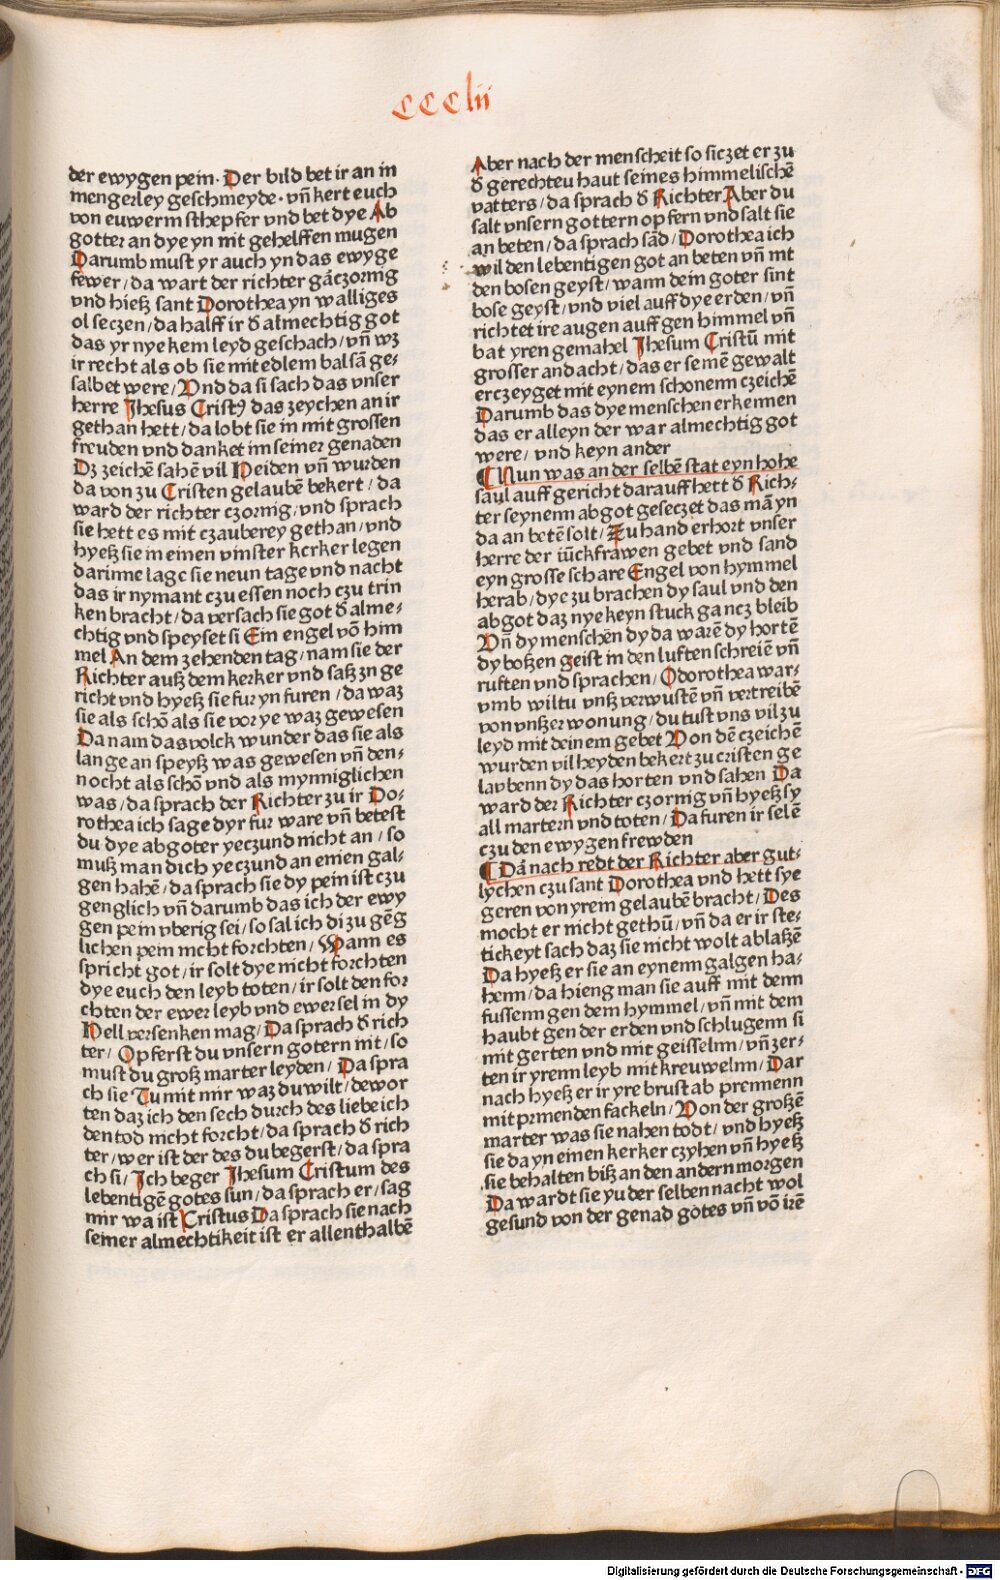 CCClii
der ewygen pein. Der bild bet ir an in
mengerley geschmeyde. vn̄ kert euch
von euwerm sthepfer vnd bet dye Ab
gotter an dye yn nit gehelffen mugen
Darumb must yr auch yn das ewyge
fewer/ da wart der richter gāczornig
vnd hiesz sant Dorothea yn walliges
ol seczen/ da halff ir d̄ almechtig got
das yr nye kem leyd geschach/ vn̄ wz
ir recht als ob sie mit edlem balsā ge⸗
salbet were/ Vnd da si sach das vnser
herre Jhesus Cristꝰ das zeychen an ir
gethan hett/ da lobt sie in mit grossen
freuden vnd danket im seiner genaden
Dz zeichē sahē vil Heiden vn̄ wurden
da von zu Cristen gelaubē bekert/ da
ward der richter czornig/ vnd sprach
sie hett es mit czauberey gethan/ vnd
hyesz sie in einen vinster kerker legen
darinne lage sie neun tage vnd nacht
das ir nymant czu essen noch czu trin
ken bracht/ da versach sie got d̄ alme⸗
chtig vnd speyset si Ein engel vō him
mel An dem zehenden tag/ nam sie der
Richter ausz dem kerker vnd sasz zn ge
richt vnd hyesz sie fur yn furen/ da waz
sie als schō als sie vor ye waz gewesen
Da nam das volck wunder das sie als
lange an speysz was gewesen vn̄ den⸗
nocht als schō vnd als mynniglichen
was/ da sprach der Richter zu ir Do⸗
rothea ich sage dyr fur ware vn̄ betest
du dye abgoter yeczund nicht an/ so
musz man dich yeczund an einen gal⸗
gen hahē/ da sprach sie dy pein ist czu
genglich vn̄ darumb das ich der ewy
gen pein vberig sei/ so sal ich di zu gēg
lichen pein nicht forchten/ Wann es
spricht got/ ir solt dye nicht forchten
dye euch den leyb toten/ ir solt den for
chten der ewer leyb vnd ewer sel in dy
Hell versenken mag/ Da sprach d̄ rich
ter/ Opferst du vnsern gotern nit/ so
must du grosz marter leyden/ Da spra
ch sie Tu mit mir waz du wilt/ de wor
ten daz ich den sech durch des liebe ich
den tod nicht forcht/ da sprach d̄ rich
ter/ wer ist der des du begerst/ da spra
ch si/ Ich beger Jhesum Cristum des
lebentigē gotes sun/ da sprach er/ sag
mir wa ist Cristus Da sprach sie nach
seiner almechtikeit ist er allenthalbē
Aber nach der menscheit so siczet er zu
d̄ gerechteu haut seines himmelischē
vatters/ da sprach d̄ Richter Aber du
salt vnsern gottern opfern vnd salt sie
an beten/ da sprach sād/ Dorothea ich
wil den lebentigen got an beten vn̄ nit
den bosen geyst/ wann dein goter sint
bose geyst/ vnd viel auff dye erden/ vn̄
richtet ire augen auff gen himmel vn̄
bat yren gemahel Jhesum Cristū mit
grosser andacht/ das er semē gewalt
erczeyget mit eynem schonenn czeichē
Darumb das dye menschen erkennen
das er alleyn der war almechtig got
were/ vnd keyn ander
¶ Nun was an der selbē stat eyn hohe
saul auff gericht darauff hett d̄ Rich⸗
ter seynenn abgot geseczet das mā yn
da an betē solt/ Zu hand erhort vnser
herre der iūckfrawen gebet vnd sand
eyn grosse schare Engel von hymmel
herab/ dye zu brachen dy saul vnd den
abgot daz nye keyn stuck gancz bleib
Vn̄ dy menschen dy da warē dy hortē
dy boszen geist in den luften schreiē vn̄
rufften vnd sprachen/ O dorothea war⸗
vmb wiltu vnsz verwustē vn̄ vertreibē
von vnszer wonung/ du tust vns vil zu
leyd mit deinem gebet Von dē czeichē
wurden vil heyden bekert zu cristen ge
laubenn dy das horten vnd sahen Da
ward der Richter czornig vn̄ hyesz sy
all martern vnd toten/ Da furen ir selē
czu den ewygen frewden
¶ Dā nach redt der Richter aber gut⸗
lychen czu sant Dorothea vnd hett sye
geren von yrem gelaubē bracht/ Des
mocht er nicht gethū/ vn̄ da er ir ste⸗
tickeyt sach daz sie nicht wolt ablaszē
Da hyesz er sie an eynenn galgen ha⸗
henn/ da hieng man sie auff mit denn
fussenn gen dem hymmel/ vn̄ mit dem
haubt gen der erden vnd schlugenn si
mit gerten vnd mit geisselnn/ vn̄ zer⸗
ten ir yrenn leyb mit kreuwelnn/ Dar
nach hyesz er ir yre brust ab prennenn
mit prinenden fackeln/ Von der groszē
marter was sie nahen todt/ vnd hyesz
sie da yn einen kerker czyhen vn̄ hyesz
sie behalten bisz an den andern morgen
Da wardt sie yu der selben nacht wol
gesund von der genad gotes vn̄ vō irē
Digitalisierung gefördert durch die Deutsche Forschungsgemeinschaft - DFG